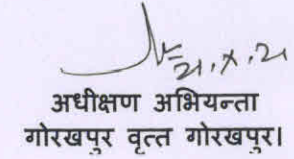 21.X.21
अधीक्षण अभियन्ता
गोरखपुर वृत्त गोरखपुर।